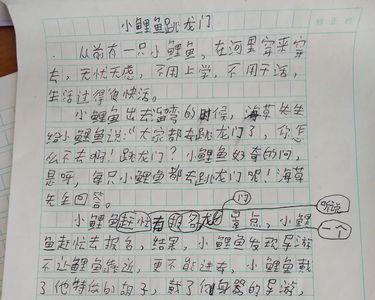 小鲤鱼跳龙门
从前有一只小鲤鱼，在河里穿来穿
去，无忧无虑，不用上学，不用干活，
生活过得很快活。
小鲤鱼出去逛弯的时候，海草先生
给小鲤鱼说："大家都去跳龙门了，你怎
么不去啊！跳龙门？小鲤鱼好奇的问，
是呀，每只小鲤鱼都去跳龙门呢！海草
先生回答。
门 听说 一个
小鲤鱼赶忙有报名龙景点，小鲤
鱼赶忙去报名，结果，小鲤鱼发现导游
不让鲤鱼靠近，更不能进去，小鲤鱼戴
了他特台的胡子，戴了的导游，